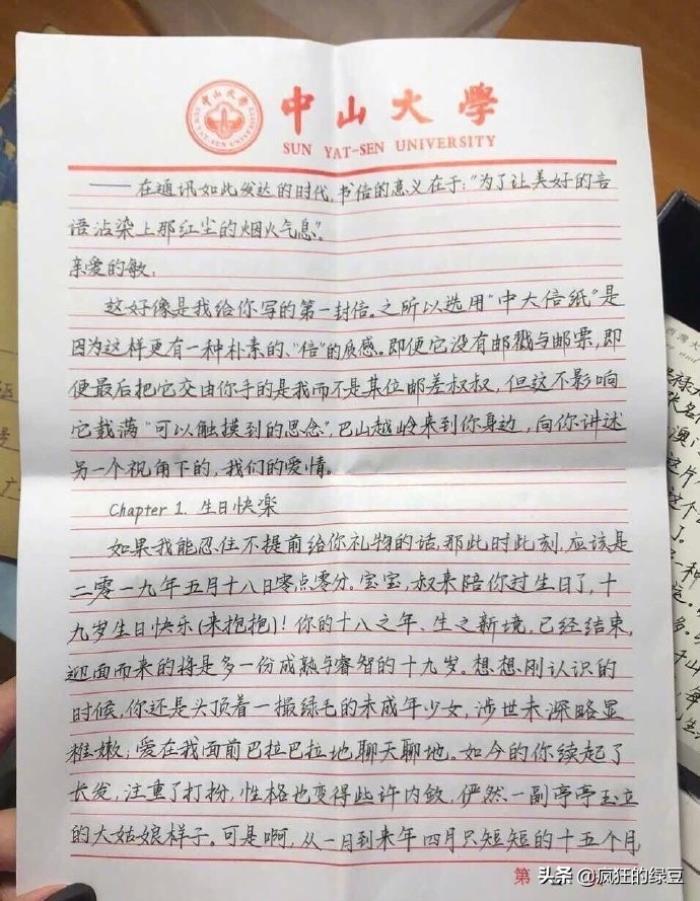 中山大學
SUN YAT-SEN UNIVERSITY
中山大學
SUN YAT-SEN UNIVERSITY
——在通讯如此发达的时代,书信的意义在于:“为了让美好的言
语沾染上那红尘的烟火气息”。
亲爱的敏,
这好像是我给你写的第一封信。之所以选用“中大信纸”是
因为这样更有一种朴素的、“信”的质感。即便它没有邮戳与邮票,即
便最后把它交由你手的是我而不是某位邮差叔叔,但这不影响
它载满“可以触摸到的思念”,巴山越岭来到你身边,向你讲述
另一个视角下的,我们的爱情。
Chapter 1. 生日快楽
如果我能忍住不提前给你礼物的话,那此时此刻,应该是
二零一九年五月十八日零点零分。宝宝,叔来陪你过生日了,十
九岁生日快乐(来抱抱)!你的十八之年、生之新境,已经结束,
迎面而来的将是多一份成熟与睿智的十九岁。想想刚认识的
时候,你还是头顶着一撮绿毛的未成年少女,涉世未深略显
稚嫩;爱在我面前巴拉巴拉地聊天聊地。如今的你续起了
长发,注重了打扮,性格也变得些许内敛,俨然一副亭亭玉立
的大姑娘样子。可是啊,从一月到来年四月只短短的十五个月
第
头条 @疯狂的绿豆